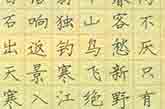 不厌只有
客愁新野
山鸟飞绝
独钓寒江
响返景入
石出天寒